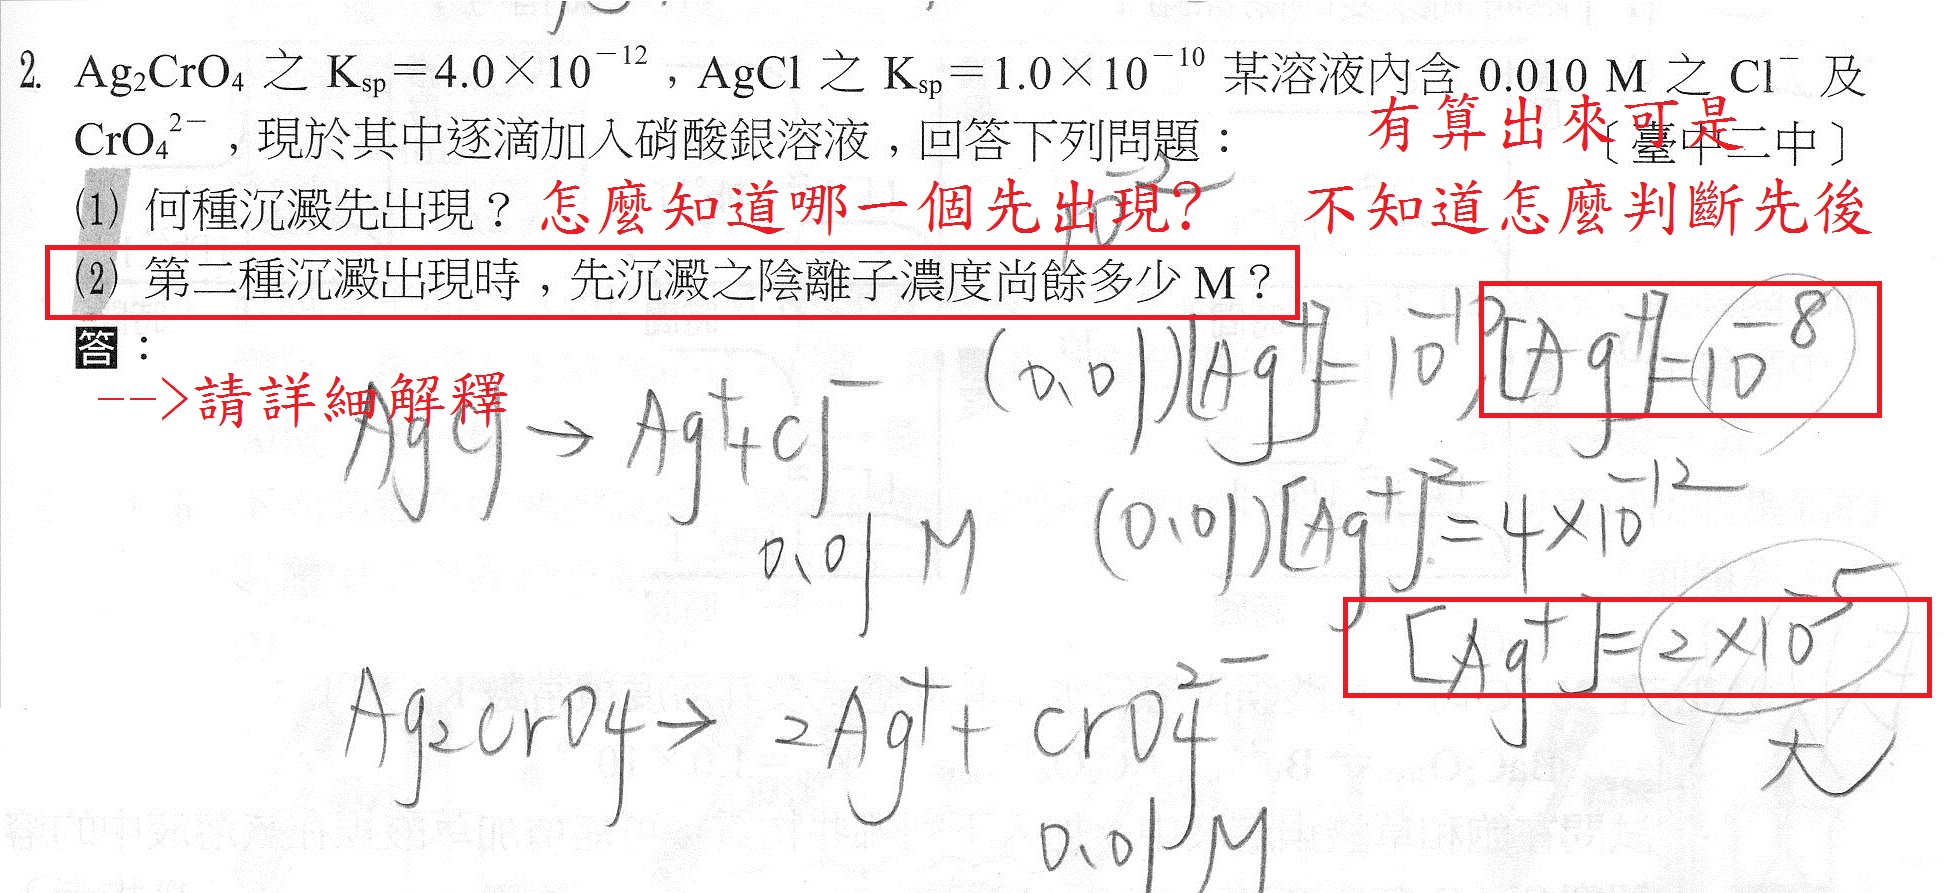 2. Ag₂CrO₄ 之 Ksp＝4.0×10⁻¹²，AgCl 之 Ksp＝1.0×10⁻¹⁰ 某溶液內含 0.010 M 之 Cl⁻ 及
CrO₄²⁻，現於其中逐滴加入硝酸銀溶液，回答下列問題：〔臺中二中〕
有算出來可是
(1) 何種沉澱先出現？
怎麼知道哪一個先出現?
不知道怎麼判斷先後
(2) 第二種沉澱出現時，先沉澱之陰離子濃度尚餘多少 M？
答：
-->請詳細解釋
AgCl → Ag⁺+Cl⁻
0.01 M
(0.01)[Ag⁺]=10⁻¹⁰, [Ag⁺]=10⁻⁸
(0.01)[Ag⁺]²=4×10⁻¹²
[Ag⁺]=2×10⁻⁵
大
Ag₂CrO₄→ 2Ag⁺+ CrO₄²⁻
0.01 M